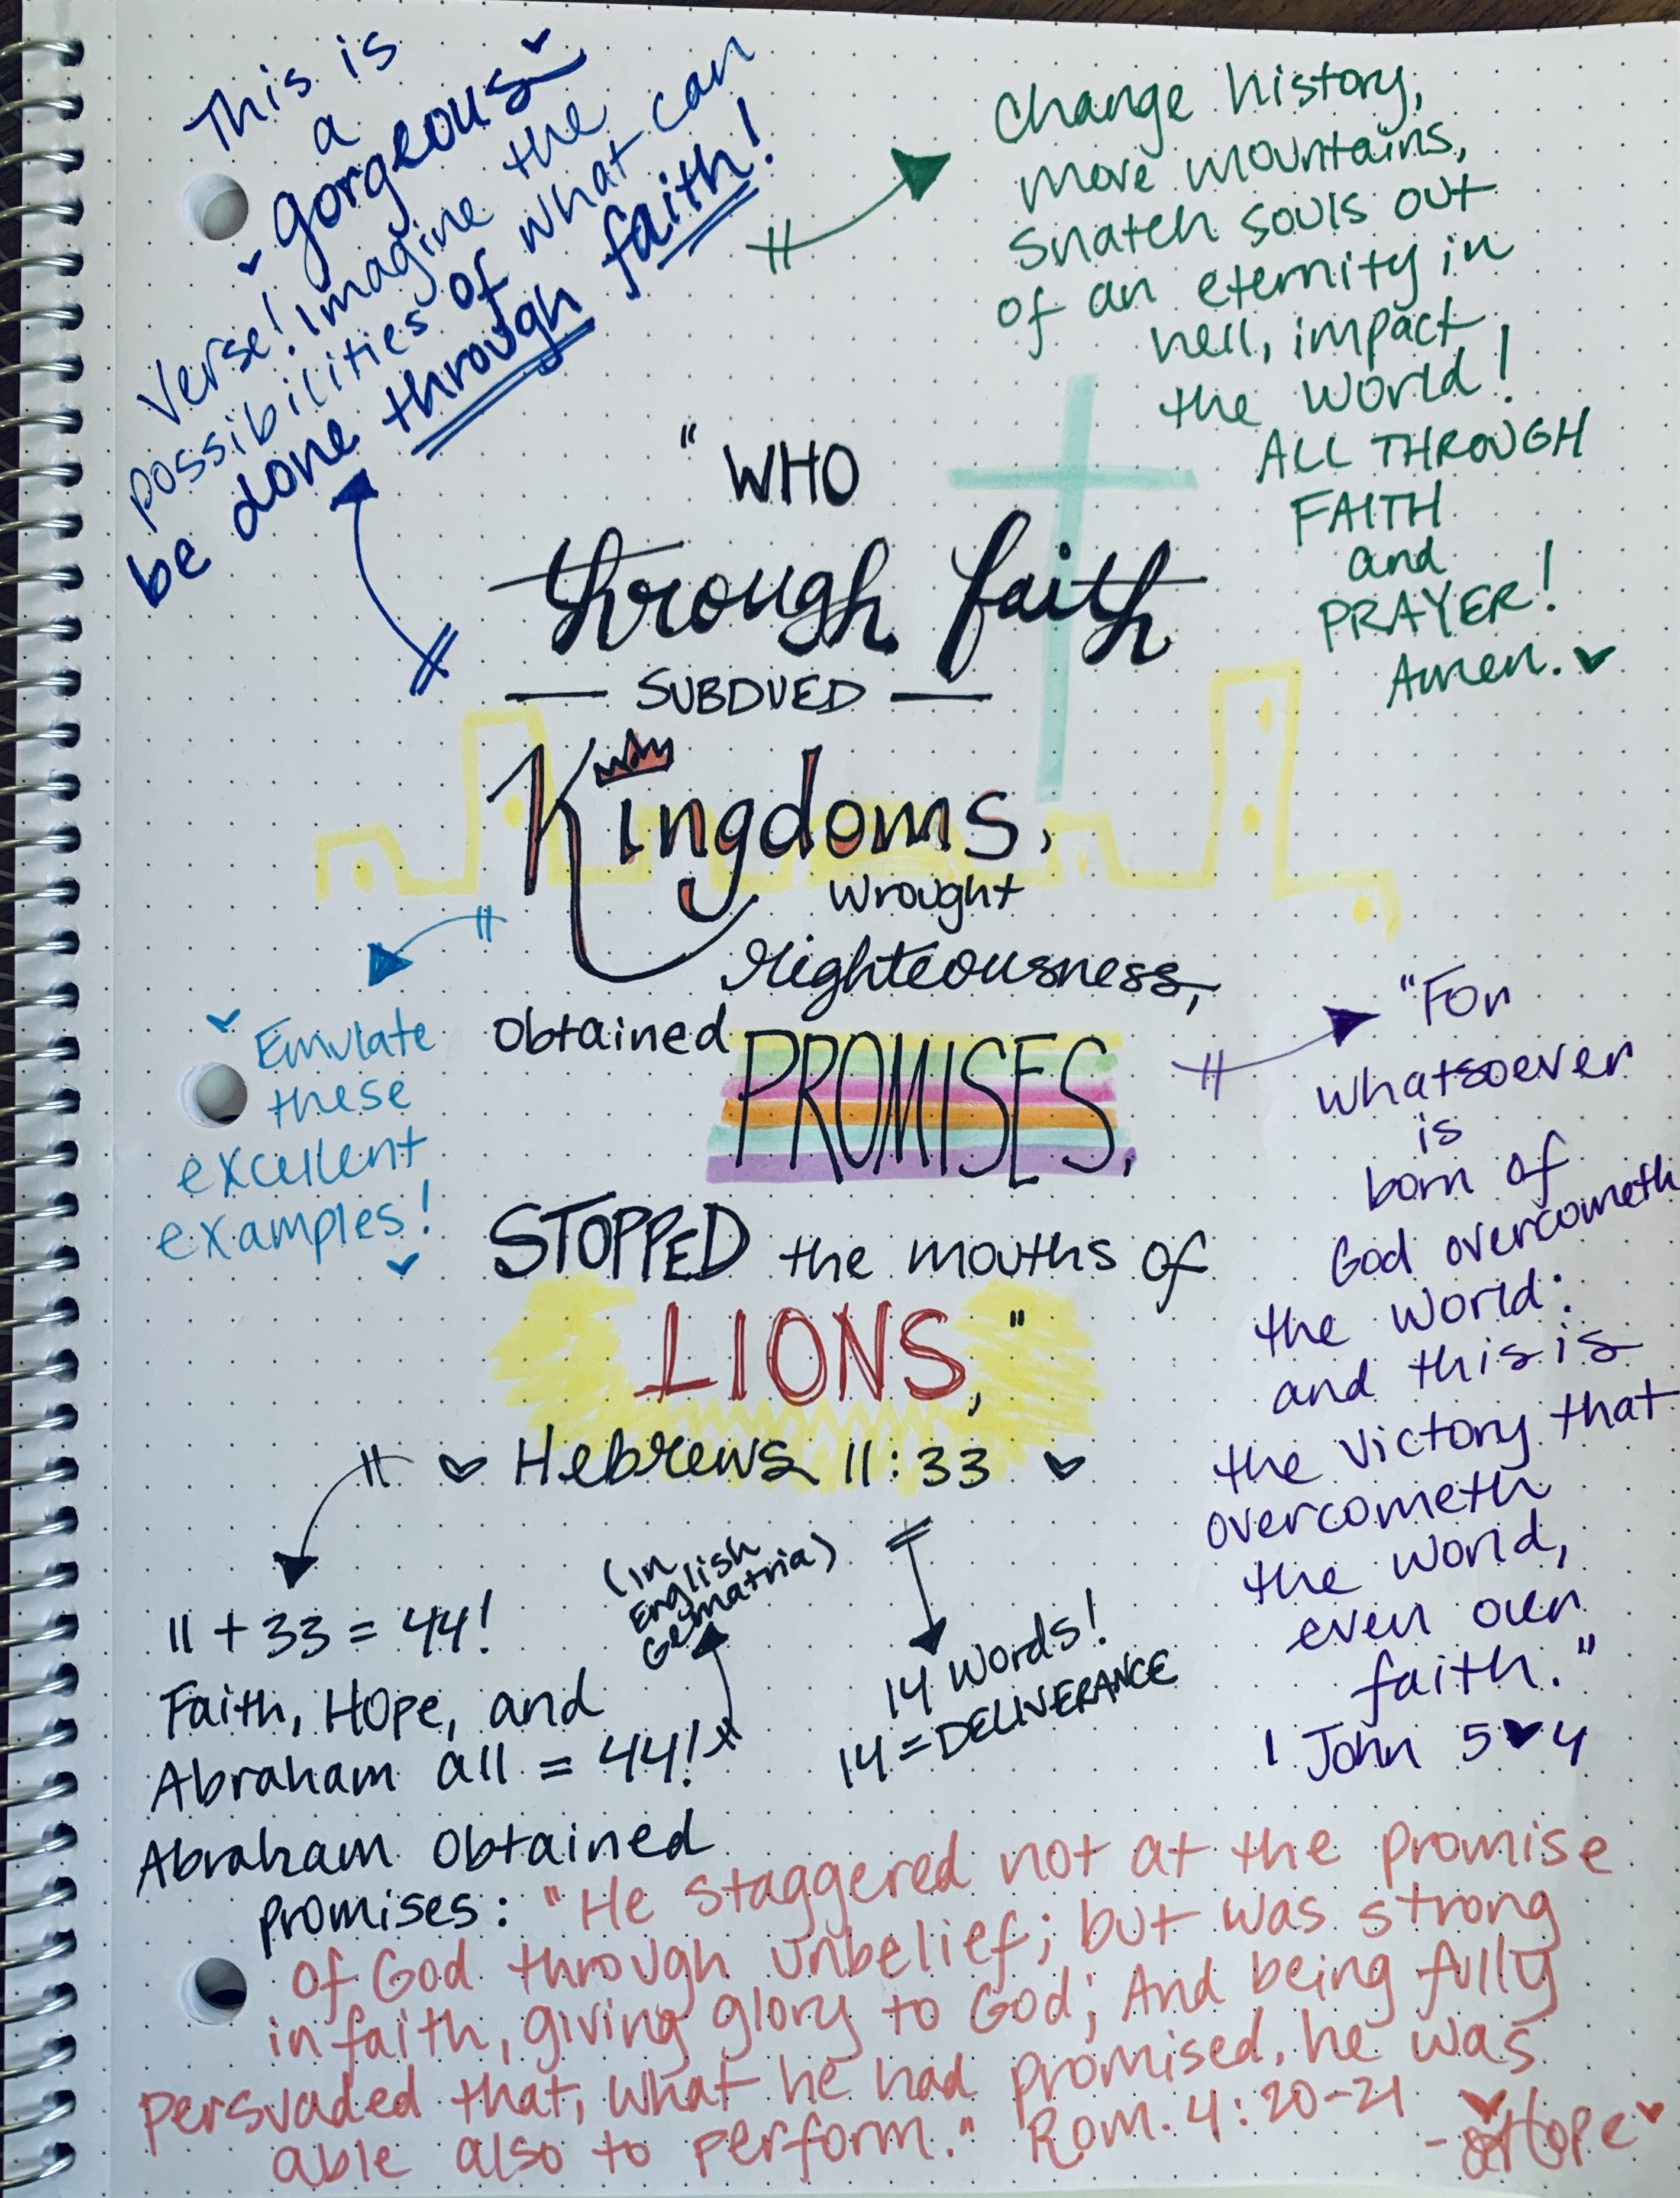 This is
a
gorgeous
verse! Imagine the
possibilities of what can
be done through faith!
Change history,
move mountains,
snatch souls out
of an eternity in
hell, impact
the world!
ALL THROUGH
FAITH
and
PRAYER!
Amen.
"WHO
through faith
— SUBDUED —
Kingdoms,
wrought
righteousness,
obtained PROMISES,
STOPPED the mouths of
LIONS,"
Hebrews 11:33
Emulate
these
excellent
examples!
"For
whatsoever
is
born of
God overcometh
the world:
and this is
the victory that
overcometh
the world,
even our
faith."
1 John 5 4
11 + 33 = 44!
Faith, Hope, and
Abraham all = 44!
(in
English
Gematria)
14 words!
14 = DELIVERANCE
Abraham obtained
promises: "He staggered not at the promise
of God through unbelief; but was strong
in faith, giving glory to God; And being fully
persuaded that, what he had promised, he was
able also to perform." Rom. 4:20-21